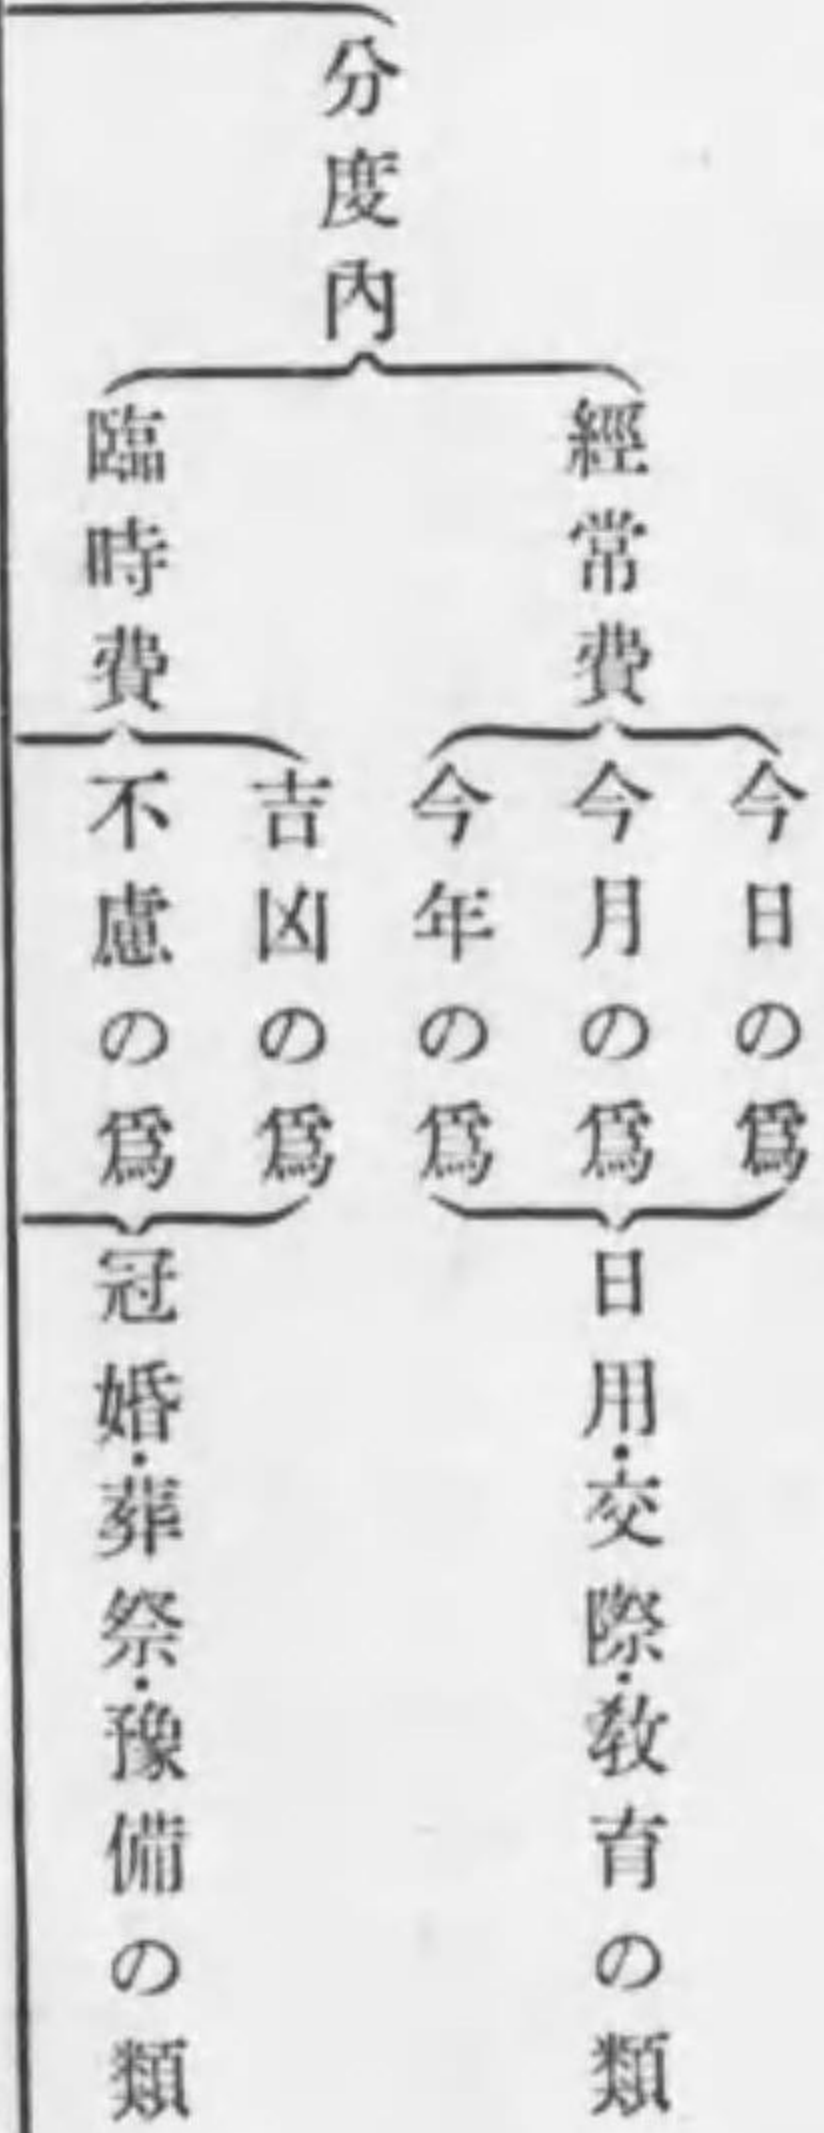 分度內
經常費
今日の爲
今月の爲
今年の爲
日用・交際・敎育の類
臨時費
吉凶の爲
不慮の爲
冠婚・葬祭・豫備の類